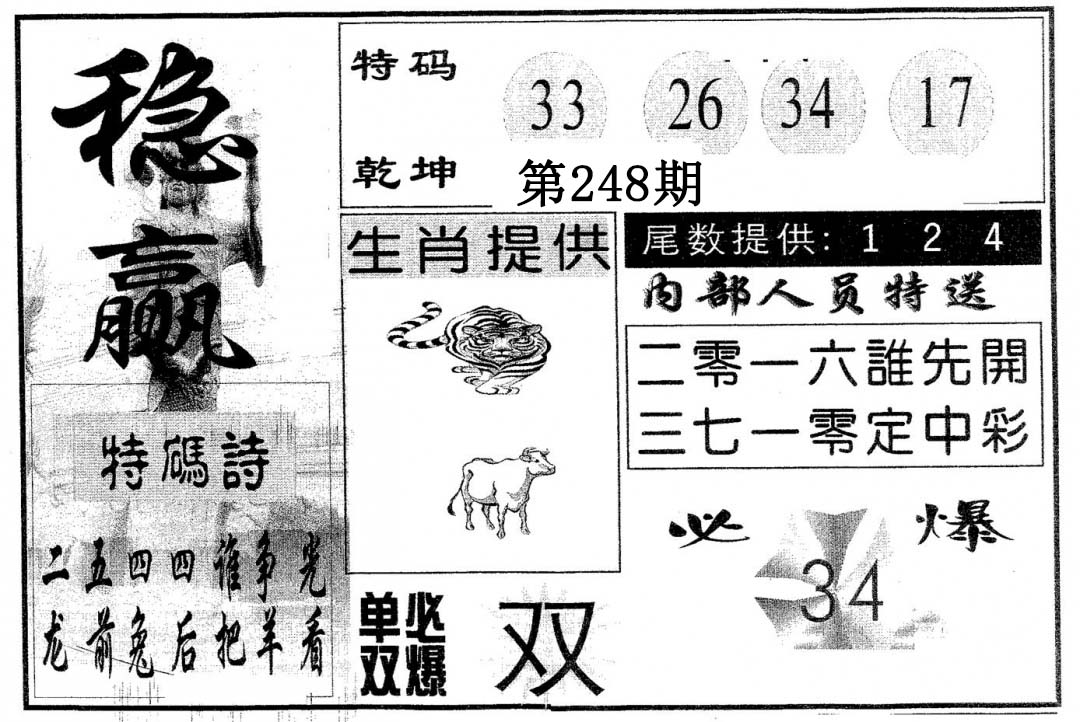 稳
赢
特码
33 26 34 17
乾坤
第248期
生肖提供
尾数提供: 1 2 4
内部人员特送
二零一六誰先開
三七一零定中彩
特碼詩
二五四四谁争光
龙前兔后把羊看
必爆
34
单双
必爆
双